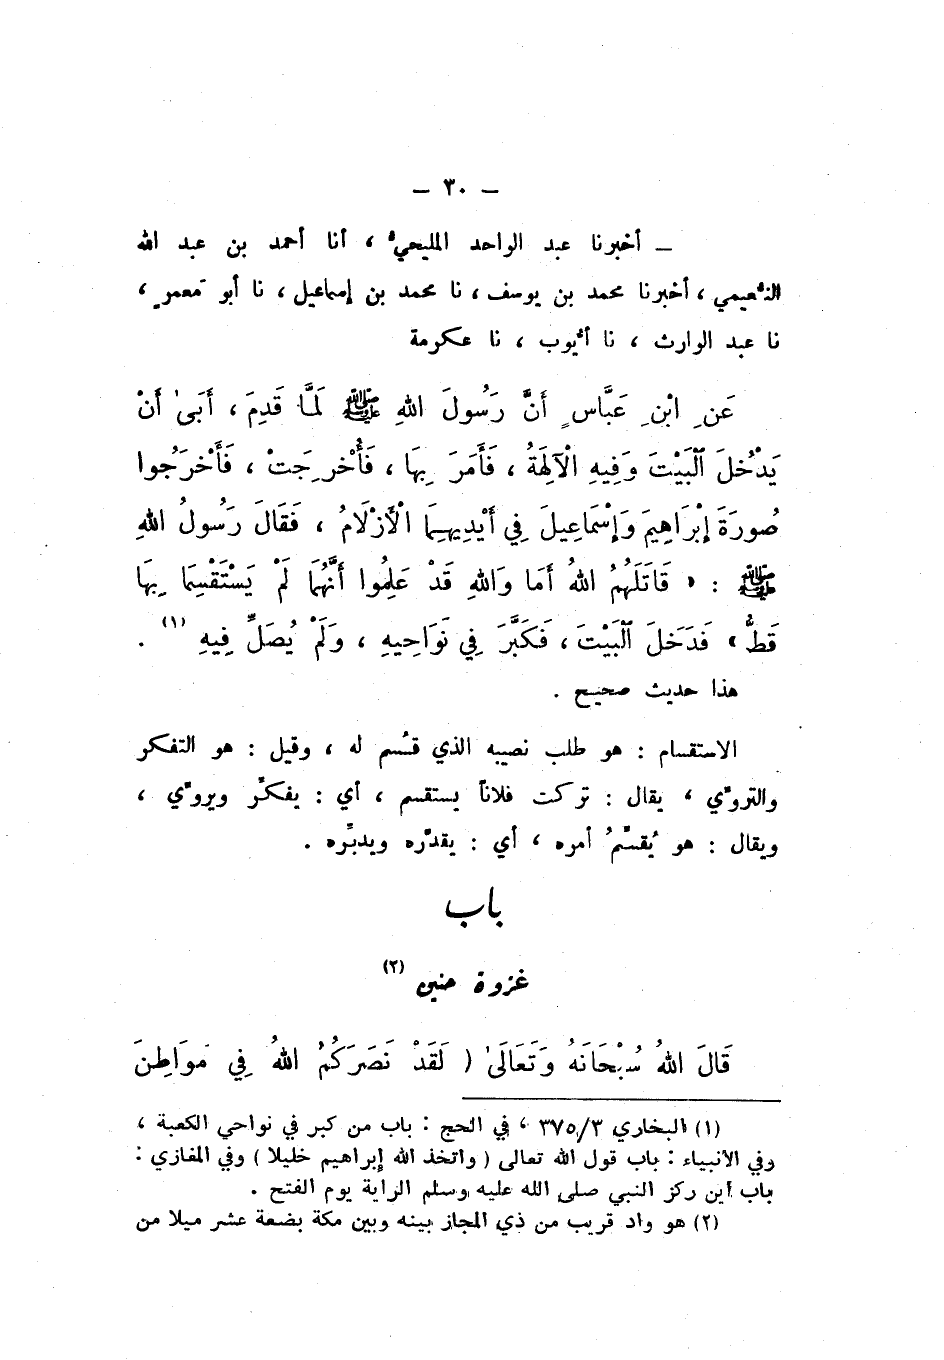 – ٣٠ –
– أخبرنا عبد الواحد المليحيّ ، أنا أحمد بن عبد الله
النُّعيمي ، أخبرنا محمد بن يوسف ، نا محمد بن إسماعيل ، نا أبو مَعمرٍ ،
نا عبد الوارث ، نا أيُّوب ، نا عكرمة
عَنِ ابْنِ عَبَّاسٍ أَنَّ رَسُولَ اللهِ ﷺ لَمَّا قَدِمَ ، أَبَىٰ أَنْ
يَدْخُلَ الْبَيْتَ وَفِيهِ الْآلِهَةُ ، فَأَمَرَ بِهَا ، فَأُخْرِجَتْ ، فَأَخْرَجُوا
صُورَةَ إِبْرَاهِيمَ وَإِسْمَاعِيلَ فِي أَيْدِيهِمَا الْأَزْلَامُ ، فَقَالَ رَسُولُ اللهِ
ﷺ : « قَاتَلَهُمُ اللهُ أَمَا وَاللهِ قَدْ عَلِمُوا أَنَّهُمَا لَمْ يَسْتَقْسِمَا بِهَا
قَطُّ » فَدَخَلَ الْبَيْتَ ، فَكَبَّرَ فِي نَوَاحِيهِ ، وَلَمْ يُصَلِّ فِيهِ (١) .
هذا حديث صحيح .
الاستقسام : هو طلب نصيبه الذي قُسم له ، وقيل : هو التفكر
والتروّي ، يقال : تركت فلاناً يستقسم ، أي : يفكّر ويروّي ،
ويقال : هو يُقسّمُ أمره ، أي : يقدّره ويدبّره .
باب
غزوة حنين (٢)
قَالَ اللهُ سُبْحَانَهُ وَتَعَالَىٰ ( لَقَدْ نَصَرَكُمُ اللهُ فِي مَوَاطِنَ
(١) البخاري ٣/٣٧٥ ، في الحج : باب من كبر في نواحي الكعبة ،
وفي الأنبياء : باب قول الله تعالى ( واتخذ الله إبراهيم خليلا ) وفي المغازي :
باب أين ركز النبي صلى الله عليه وسلم الراية يوم الفتح .
(٢) هو واد قريب من ذي المجاز بينه وبين مكة بضعة عشر ميلا من